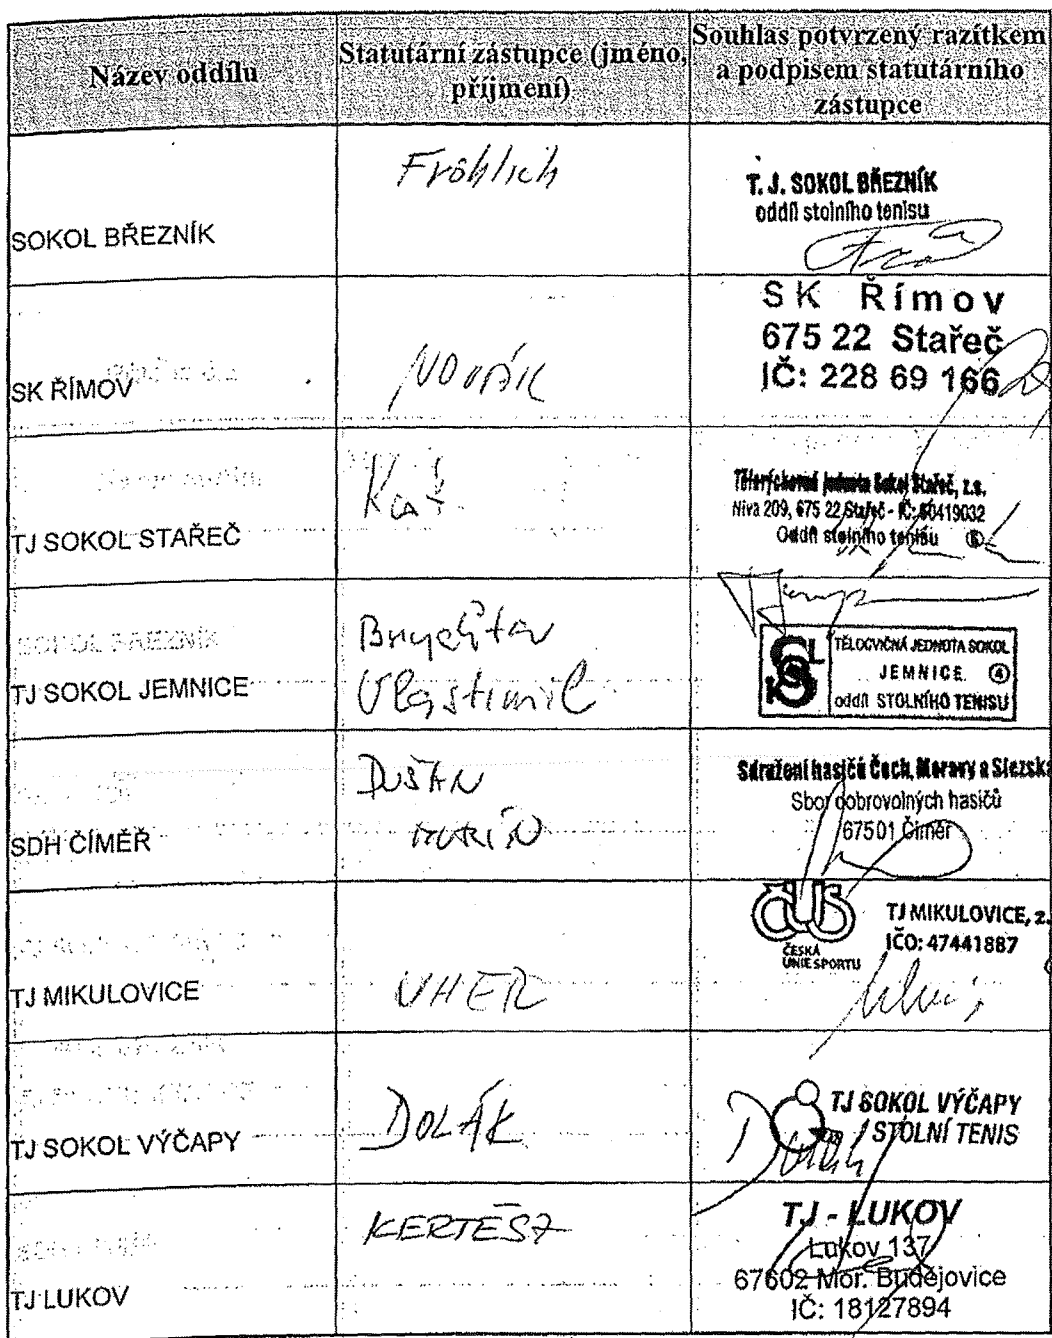 Název oddílu
Statutární zástupce (jméno,
příjmení)
Souhlas potvrzený razítkem
a podpisem statutárního
zástupce
SOKOL BŘEZNÍK
Fröhlich
T. J. SOKOL BŘEZNÍK
oddíl stolního tenisu
SK ŘÍMOV
NOVÁK
SK Římov
675 22 Stařeč
IČ: 228 69 166
TJ SOKOL STAŘEČ
Tělovýchovná jednota Sokol Stařeč, z.s.
Niva 209, 675 22 Stařeč - IČ: 60419032
Oddíl stolního tenisu
TJ SOKOL JEMNICE
Vlastimil
TĚLOCVIČNÁ JEDNOTA SOKOL
JEMNICE 4
oddíl STOLNÍHO TENISU
SDH ČÍMĚŘ
DUŠAN
Sdružení hasičů Čech, Moravy a Slezska
Sbor dobrovolných hasičů
67501 Číměř
TJ MIKULOVICE
UHER
ČUS
ČESKÁ
UNIE SPORTU
TJ MIKULOVICE, z.
IČO: 47441887
TJ SOKOL VÝČAPY
DOLÁK
TJ SOKOL VÝČAPY
STOLNÍ TENIS
TJ LUKOV
KERTÉSZ
TJ - LUKOV
Lukov 137
67602 Mor. Budějovice
IČ: 18127894